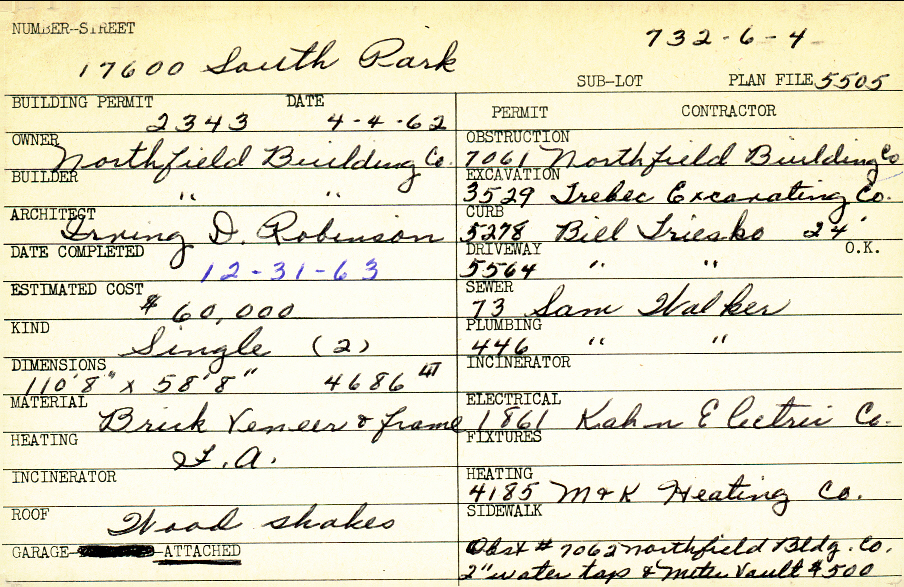 NUMBER-STREET
732-6-4
17600 South Park
SUB-LOT PLAN FILE 5505
BUILDING PERMIT DATE
2343 4-4-62
OWNER
Northfield Building Co.
BUILDER
" "
ARCHITECT
Irving D. Robinson
DATE COMPLETED
12-31-63
ESTIMATED COST
$ 60,000
KIND
Single (2)
DIMENSIONS
110'8" x 58'8" 4686
MATERIAL
Brick Veneer & frame
HEATING
F.A.
INCINERATOR
ROOF
Wood shakes
GARAGE- -ATTACHED
PERMIT CONTRACTOR
OBSTRUCTION
7061 Northfield Building Co
EXCAVATION
3529 Trebec Excavating Co.
CURB
5278 Bill Triesko 24'
DRIVEWAY O.K.
5564 " "
SEWER
73 Sam Walker
PLUMBING
446 " "
INCINERATOR
ELECTRICAL
1861 Kahn Electric Co.
FIXTURES
HEATING
4185 M & K Heating Co.
SIDEWALK
Obst # 7062 Northfield Bldg. Co.
2" water tap & Meter Vault $500